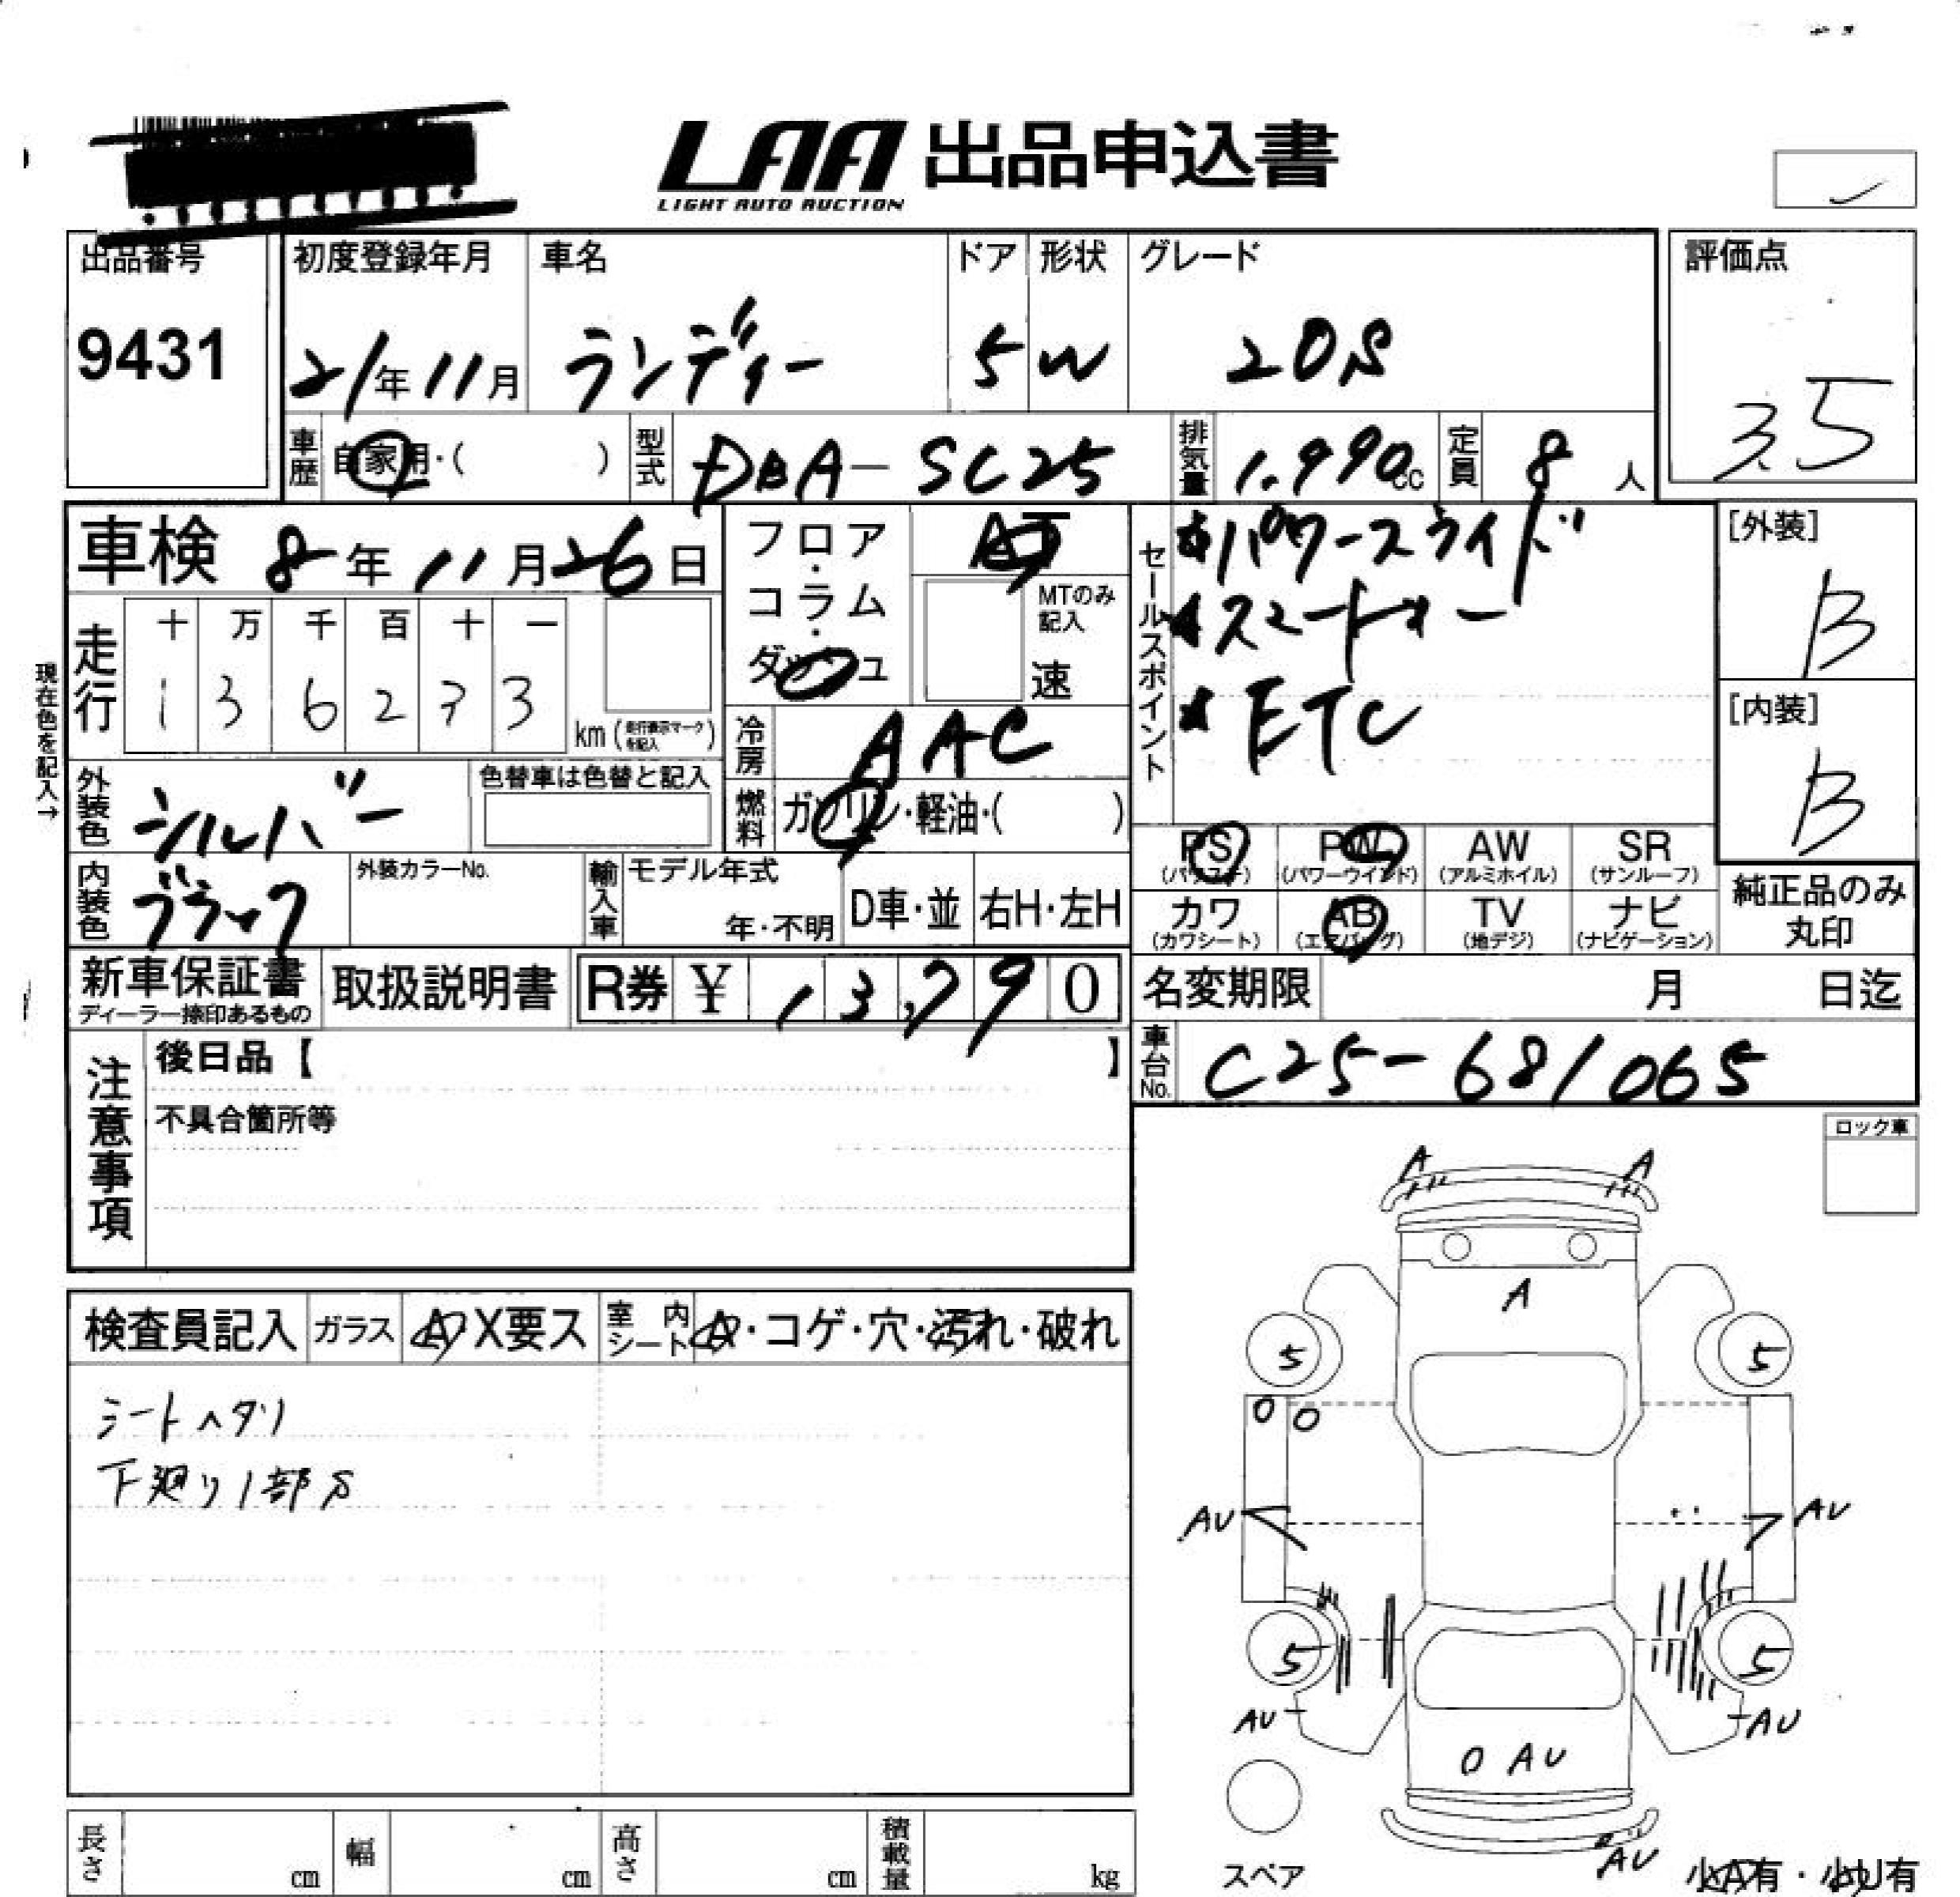 LAA 出品申込書
LIGHT AUTO AUCTION
出品番号
9431
初度登録年月
21年11月
車名
ランディー
ドア
5
形状
W
グレード
20S
評価点
3.5
車歴
自家用・( )
型式
DBA-SC25
排気量
1.990cc
定員
8人
車検 8年11月26日
フロア・コラム・ダッシュ
AT
MTのみ記入
速
セールスポイント
★パワースライド
★スマートキー
★ETC
[外装]
B
[内装]
B
現在色を記入→
走行
十 万 千 百 十 一
1 3 6 2 7 3
km(走行表示マークを記入)
冷房
AAC
外装色
シルバー
色替車は色替と記入
燃料
ガソリン・軽油・( )
PS
(パワステ)
PW
(パワーウインド)
AW
(アルミホイル)
SR
(サンルーフ)
内装色
ブラック
外装カラーNo.
輸入車
モデル年式
年・不明
D車・並
右H・左H
カワ
(カワシート)
AB
(エアバッグ)
TV
(地デジ)
ナビ
(ナビゲーション)
純正品のみ
丸印
新車保証書
ディーラー捺印あるもの
取扱説明書
R券 ¥ 13,790
名変期限 月 日迄
注意事項
後日品【 】
不具合箇所等
車台No.
C25-681065
ロック車
検査員記入
ガラス
A X要ス
室内シート
A・コゲ・穴・汚れ・破れ
シートヘタリ
下廻り1部S
A A
A
5 5
0 0
AU AU
5 5
AU AU
0 AU
AU
スペア
小A有・小U有
長さ cm
幅 cm
高さ cm
積載量 kg